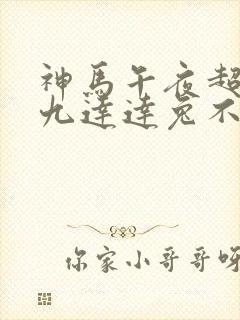 神馬午夜超
九達達兔不
你家小哥哥呀